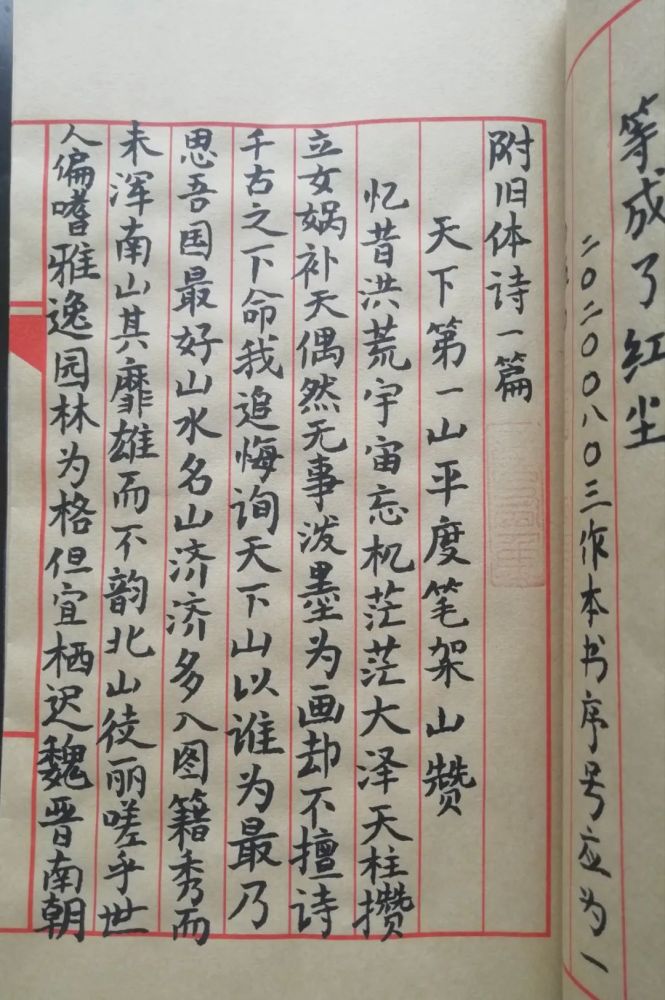 等成了红尘
二〇二〇〇八〇三作本书序号应为一
附旧体诗一篇
天下第一山平度笔架山赞
忆昔洪荒宇宙忘机茫茫大泽天柱攒
立女娲补天偶然无事泼墨为画却不擅诗
千古之下命我追悔询天下山以谁为最乃
思吾国最好山水名山济济多入图籍秀而
未浑南山其靡雄而不韵北山徒丽嗟乎世
人偏嗜雅逸园林为格但宜栖迟魏晋南朝